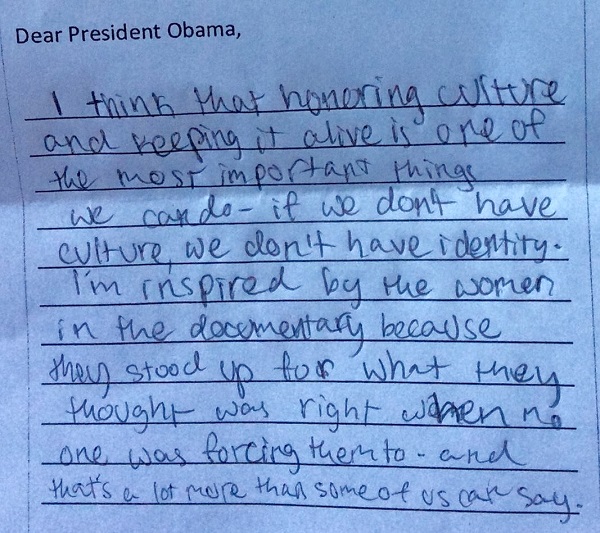 Dear President Obama,
I think that honoring culture
and keeping it alive is one of
the most important things
we can do - if we don't have
culture, we don't have identity.
I'm inspired by the women
in the documentary because
they stood up for what they
thought was right when no
one was forcing them to - and
that's a lot more than some of us can say.